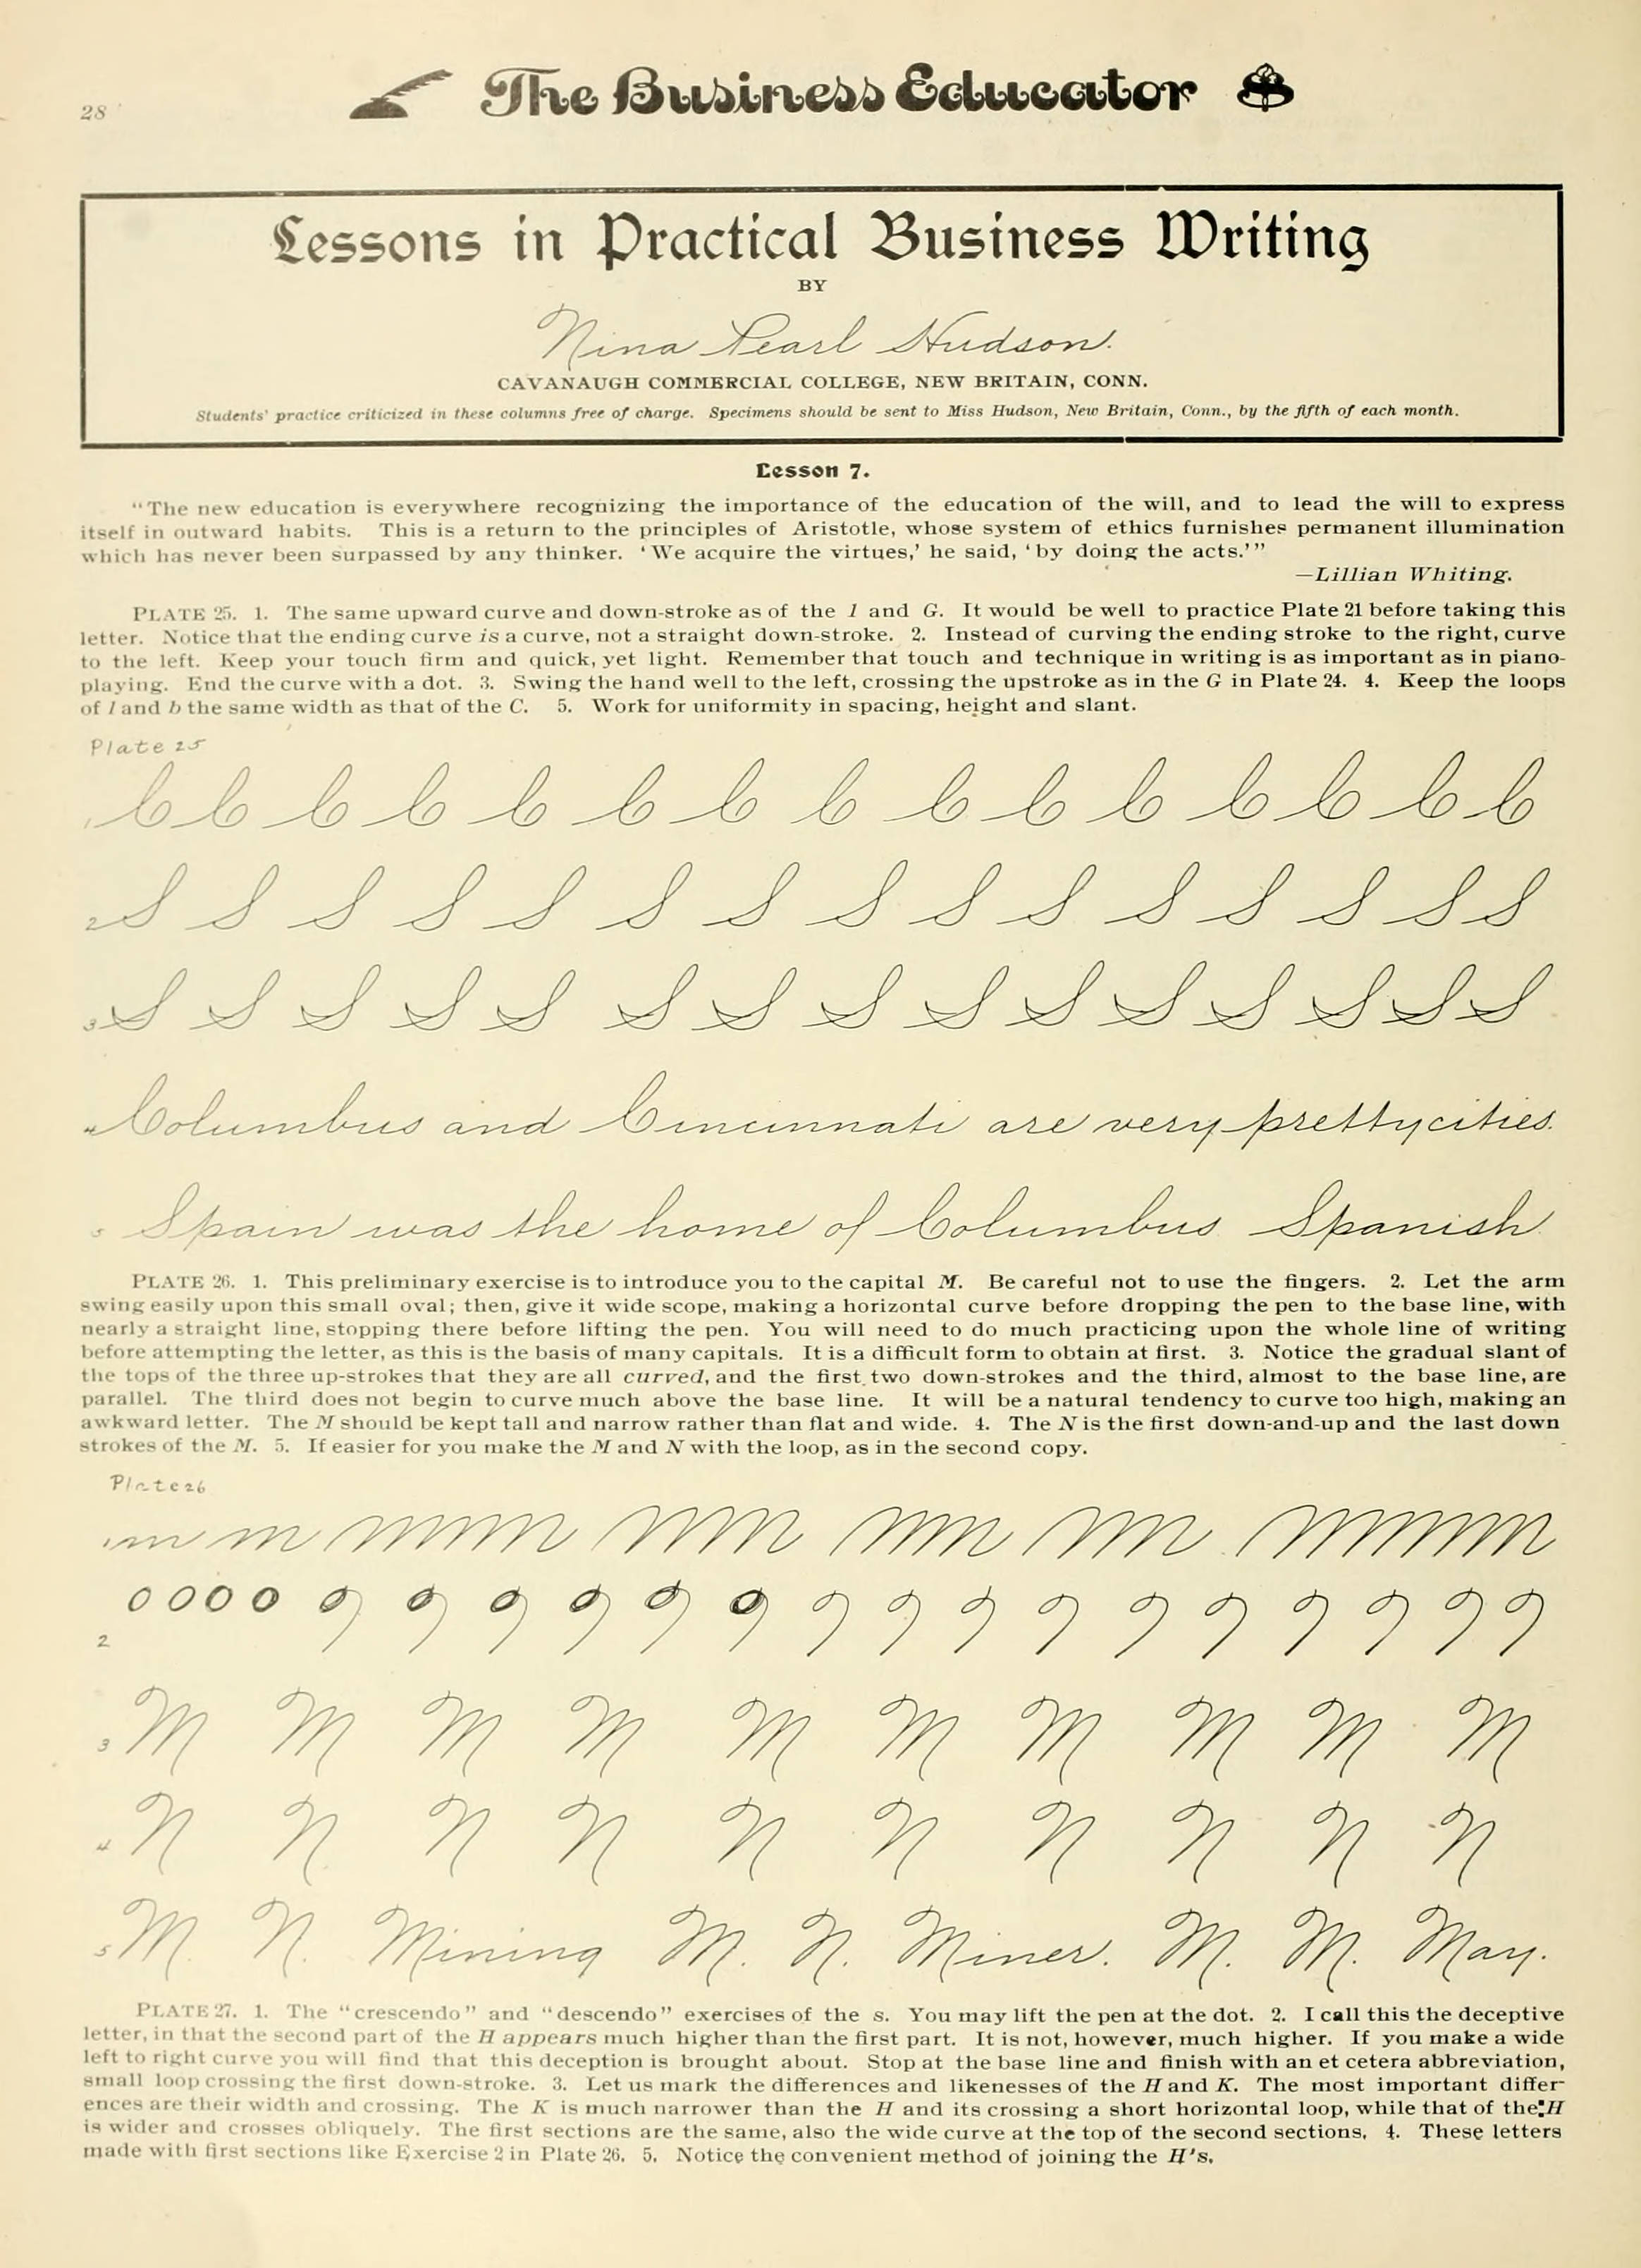 28
The Business Educator
Lessons in Practical Business Writing
BY
Nina Pearl Hudson.
CAVANAUGH COMMERCIAL COLLEGE, NEW BRITAIN, CONN.
Students' practice criticized in these columns free of charge. Specimens should be sent to Miss Hudson, New Britain, Conn., by the fifth of each month.
Lesson 7.
"The new education is everywhere recognizing the importance of the education of the will, and to lead the will to express
itself in outward habits. This is a return to the principles of Aristotle, whose system of ethics furnishes permanent illumination
which has never been surpassed by any thinker. 'We acquire the virtues,' he said, 'by doing the acts.'"
—Lillian Whiting.
PLATE 25. 1. The same upward curve and down-stroke as of the l and G. It would be well to practice Plate 21 before taking this
letter. Notice that the ending curve is a curve, not a straight down-stroke. 2. Instead of curving the ending stroke to the right, curve
to the left. Keep your touch firm and quick, yet light. Remember that touch and technique in writing is as important as in piano-
playing. End the curve with a dot. 3. Swing the hand well to the left, crossing the upstroke as in the G in Plate 24. 4. Keep the loops
of l and b the same width as that of the C. 5. Work for uniformity in spacing, height and slant.
Plate 25
1 C C C C C C C C C C C C C C C
2 S S S S S S S S S S S S S S S
3 S S S S S S S S S S S S S S S
4 Columbus and Cincinnati are very pretty cities.
5 Spain was the home of Columbus Spanish
PLATE 26. 1. This preliminary exercise is to introduce you to the capital M. Be careful not to use the fingers. 2. Let the arm
swing easily upon this small oval; then, give it wide scope, making a horizontal curve before dropping the pen to the base line, with
nearly a straight line, stopping there before lifting the pen. You will need to do much practicing upon the whole line of writing
before attempting the letter, as this is the basis of many capitals. It is a difficult form to obtain at first. 3. Notice the gradual slant of
the tops of the three up-strokes that they are all curved, and the first two down-strokes and the third, almost to the base line, are
parallel. The third does not begin to curve much above the base line. It will be a natural tendency to curve too high, making an
awkward letter. The M should be kept tall and narrow rather than flat and wide. 4. The N is the first down-and-up and the last down
strokes of the M. 5. If easier for you make the M and N with the loop, as in the second copy.
Plate 26
1
0 0 0 0
2
3 M M M M M M M M M M
4 N N N N N N N N N N
5 M. N. Mining M. N. Miner. M. M. May.
PLATE 27. 1. The "crescendo" and "descendo" exercises of the s. You may lift the pen at the dot. 2. I call this the deceptive
letter, in that the second part of the H appears much higher than the first part. It is not, however, much higher. If you make a wide
left to right curve you will find that this deception is brought about. Stop at the base line and finish with an et cetera abbreviation,
small loop crossing the first down-stroke. 3. Let us mark the differences and likenesses of the H and K. The most important differ-
ences are their width and crossing. The K is much narrower than the H and its crossing a short horizontal loop, while that of the H
is wider and crosses obliquely. The first sections are the same, also the wide curve at the top of the second sections. 4. These letters
made with first sections like Exercise 2 in Plate 26. 5. Notice the convenient method of joining the H's.